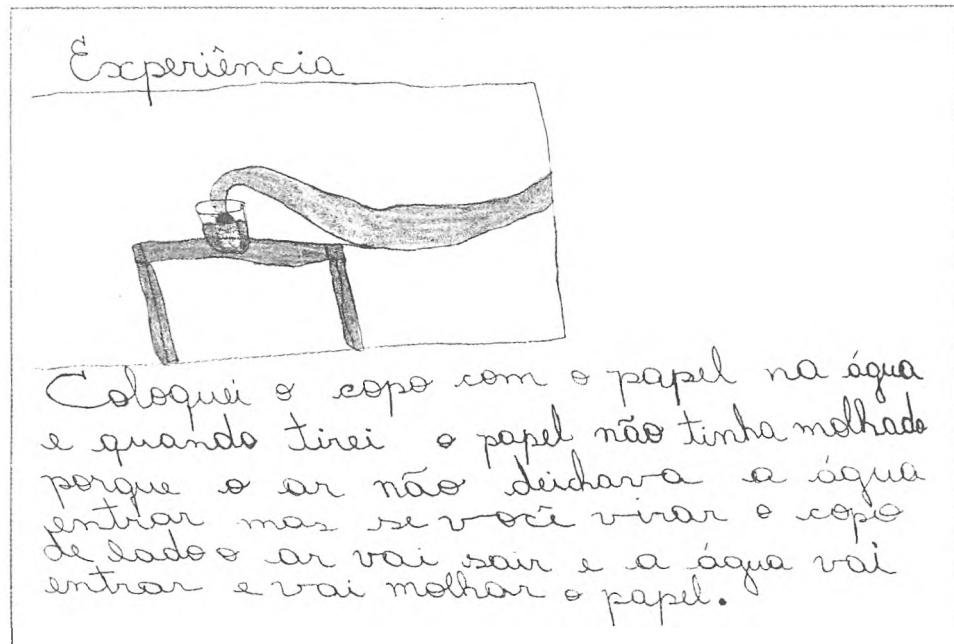 Experiência
Coloquei o copo com o papel na água
e quando tirei o papel não tinha molhado
porque o ar não deichava a água
entrar mas se você virar o copo
de lado o ar vai sair e a água vai
entrar e vai molhar o papel.